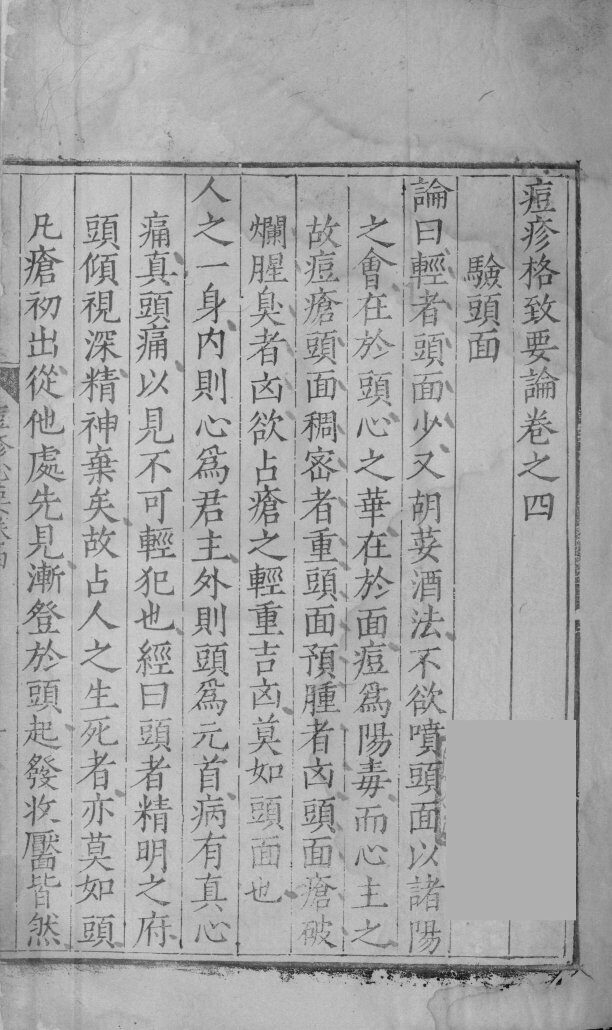 痘疹格致要論卷之四
驗頭面
論曰輕者頭面少又胡荽酒法不欲噴頭面以諸陽
之會在於頭心之華在於面痘爲陽毒而心主之
故痘瘡頭面稠密者重頭面預腫者凶頭面瘡破
爛腥臭者凶欲占瘡之輕重吉凶莫如頭面也
人之一身内則心爲君主外則頭爲元首病有真心
痛真頭痛以見不可輕犯也經曰頭者精明之府
頭傾視深精神棄矣故占人之生死者亦莫如頭
凡瘡初出從他處先見漸登於頭起發收靨皆然